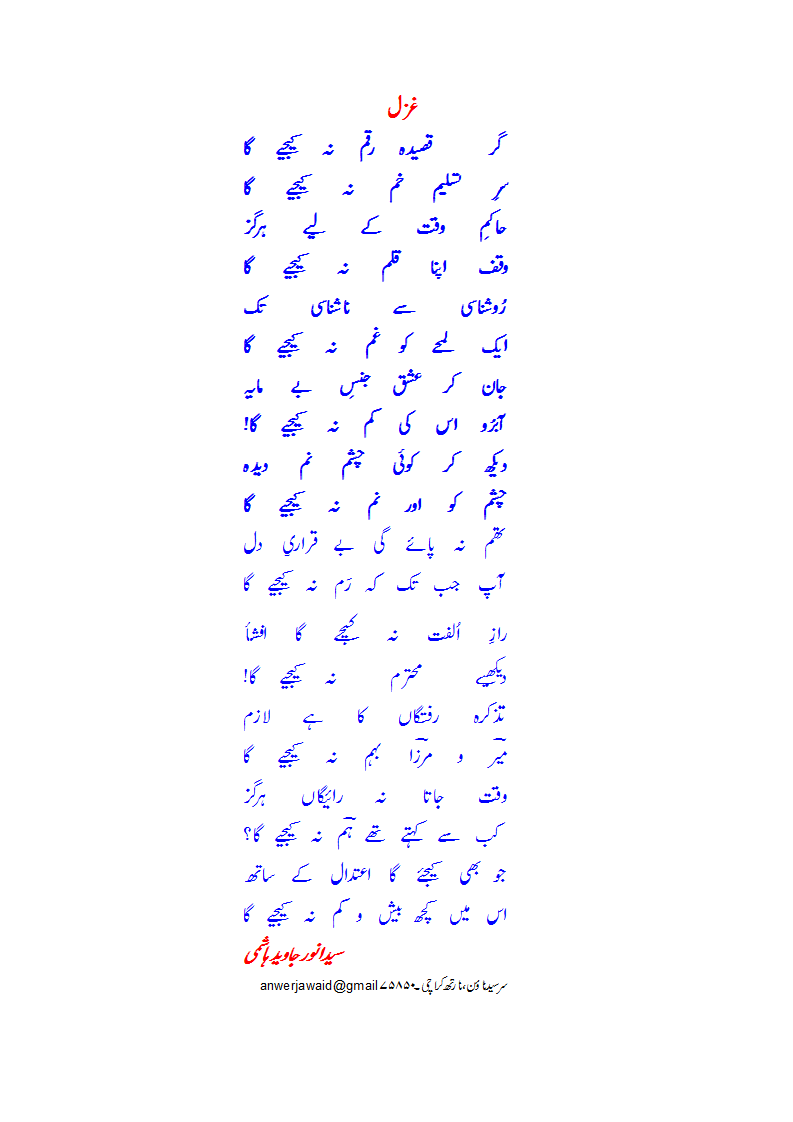 غزل
گر قصیدہ رقم نہ کیجیے گا
سرِ تسلیم خم نہ کیجیے گا
حاکمِ وقت کے لیے ہرگز
وقف اپنا قلم نہ کیجیے گا
رُوشناسی سے ناشناسی تک
ایک لمحے کو غم نہ کیجیے گا
جان کر عشق جنسِ بے مایہ
آبرُو اس کی کم نہ کیجیے گا!
دیکھ کر کوئی چشم نم دیدہ
چشم کو اور نم نہ کیجیے گا
تھم نہ پائے گی بے قراریِ دل
آپ جب تک کہ رَم نہ کیجیے گا
رازِ اُلفت نہ کیجیے گا افشأ
دیکھیے محترم نہ کیجیے گا!
تذکرہ رفتگاں کا ہے لازم
میرؔ و مرزاؔ بہم نہ کیجیے گا
وقت جاتا نہ رائیگاں ہرگز
کب سے کہتے تھے ہمؔ نہ کیجیے گا؟
جو بھی کیجئے گا اعتدال کے ساتھ
اس میں کچھ بیش و کم نہ کیجیے گا
سیدانورجاویدہاشمی
سرسیدٹاؤن،نارتھ کراچی۔۷۵۸۵۰ anwerjawaid@gmail